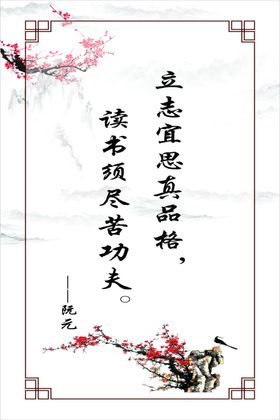 立志宜思真品格，
读书须尽苦功夫。
——阮元